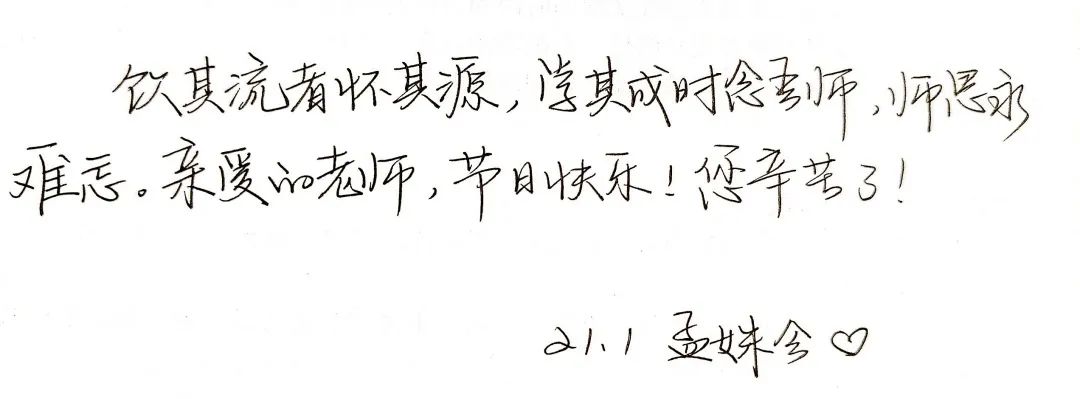 饮其流者怀其源，学其成时念吾师，师恩永
难忘。亲爱的老师，节日快乐！您辛苦了！
21.1 孟姝含♡